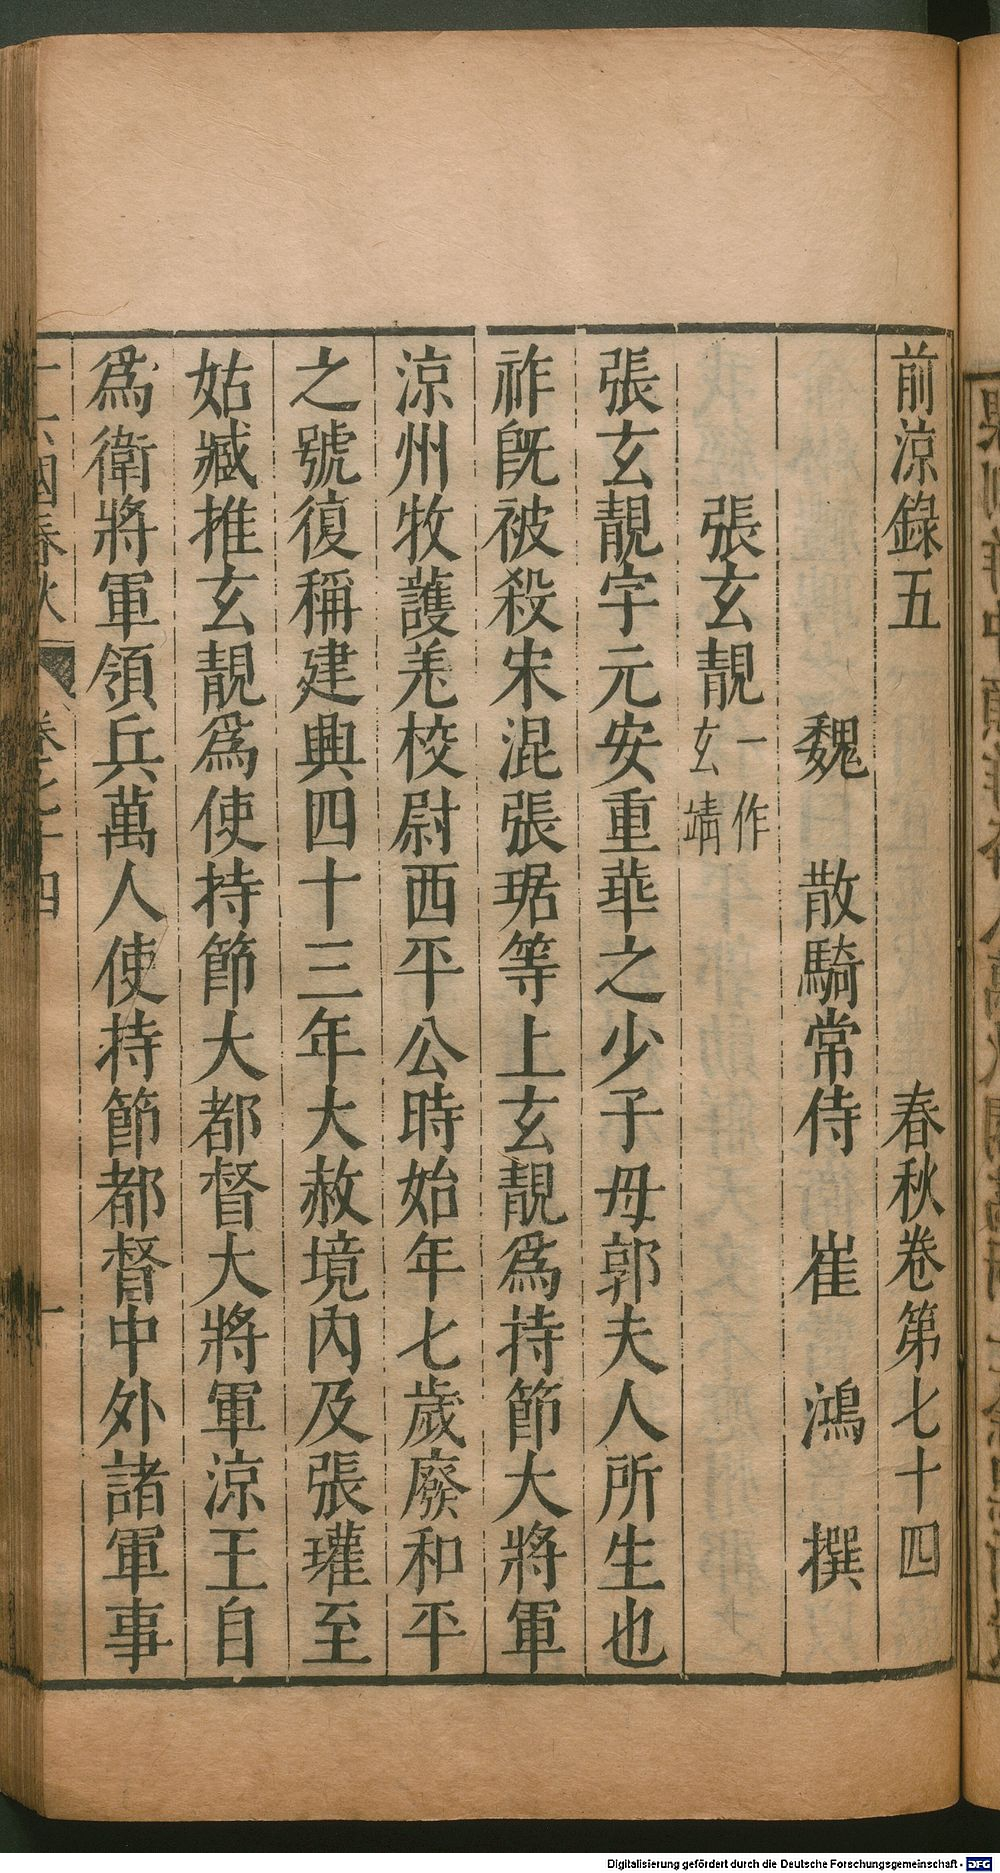 前涼錄五　春秋卷第七十四
魏　散騎常侍　崔　鴻　撰
張玄靚一作玄靖
張玄靚字元安重華之少子母郭夫人所生也
祚旣被殺宋混張琚等上玄靚爲持節大將軍
涼州牧護羌校尉西平公時始年七歲廢和平
之號復稱建興四十三年大赦境內及張瓘至
姑臧推玄靚爲使持節大都督大將軍涼王自
爲衛將軍領兵萬人使持節都督中外諸軍事
十六國春秋　卷七十四　一
Digitalisierung gefördert durch die Deutsche Forschungsgemeinschaft - DFG